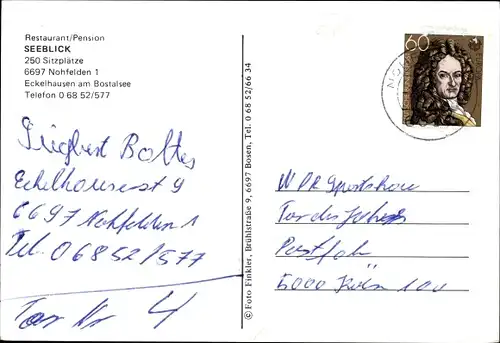 Restaurant/Pension
SEEBLICK
250 Sitzplätze
6697 Nohfelden 1
Eckelhausen am Bostalsee
Telefon 0 68 52/577
Siegbert Boltes
Eckelhauserst 9
6697 Nohfelden 1
Tel. 06852/577
Tor Nr 4
© Foto Finkler, Brühlstraße 9, 6697 Bosen, Tel. 0 68 52/66 34
60
WDR Sportschau
Tor des Jahres
Postfah
5000 Köln 100